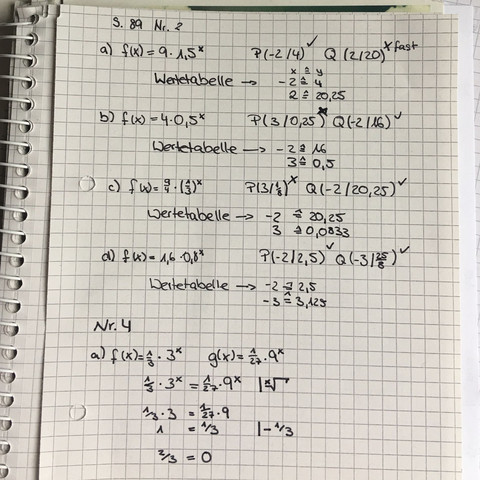 S. 89 Nr. 2
a) f(x) = 9 · 1,5ˣ P(-2/4) ✓ Q (2/20) x fast
x ≙ y
Wertetabelle → -2 ≙ 4
2 ≙ 20,25
b) f(x) = 4 · 0,5ˣ P(3/0,25) x Q(-2/16) ✓
Wertetabelle → -2 ≙ 16
3 ≙ 0,5
c) f(x) = 9/4 · (1/3)ˣ P(3/1/8) x Q(-2/20,25) ✓
Wertetabelle → -2 ≙ 20,25
3 ≙ 0,0833
d) f(x) = 1,6 · 0,8ˣ P(-2/2,5) ✓ Q(-3/25/8) ✓
Wertetabelle → -2 ≙ 2,5
-3 ≙ 3,125
Nr. 4
a) f(x) = 1/3 · 3ˣ g(x) = 1/27 · 9ˣ
1/3 · 3ˣ = 1/27 · 9ˣ |ˣ√
1/3 · 3 = 1/27 · 9
1 = 1/3 |- 1/3
2/3 = 0